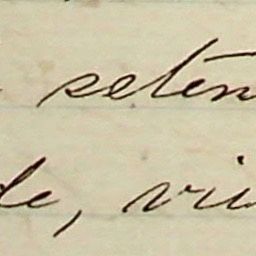 seten
de, viu